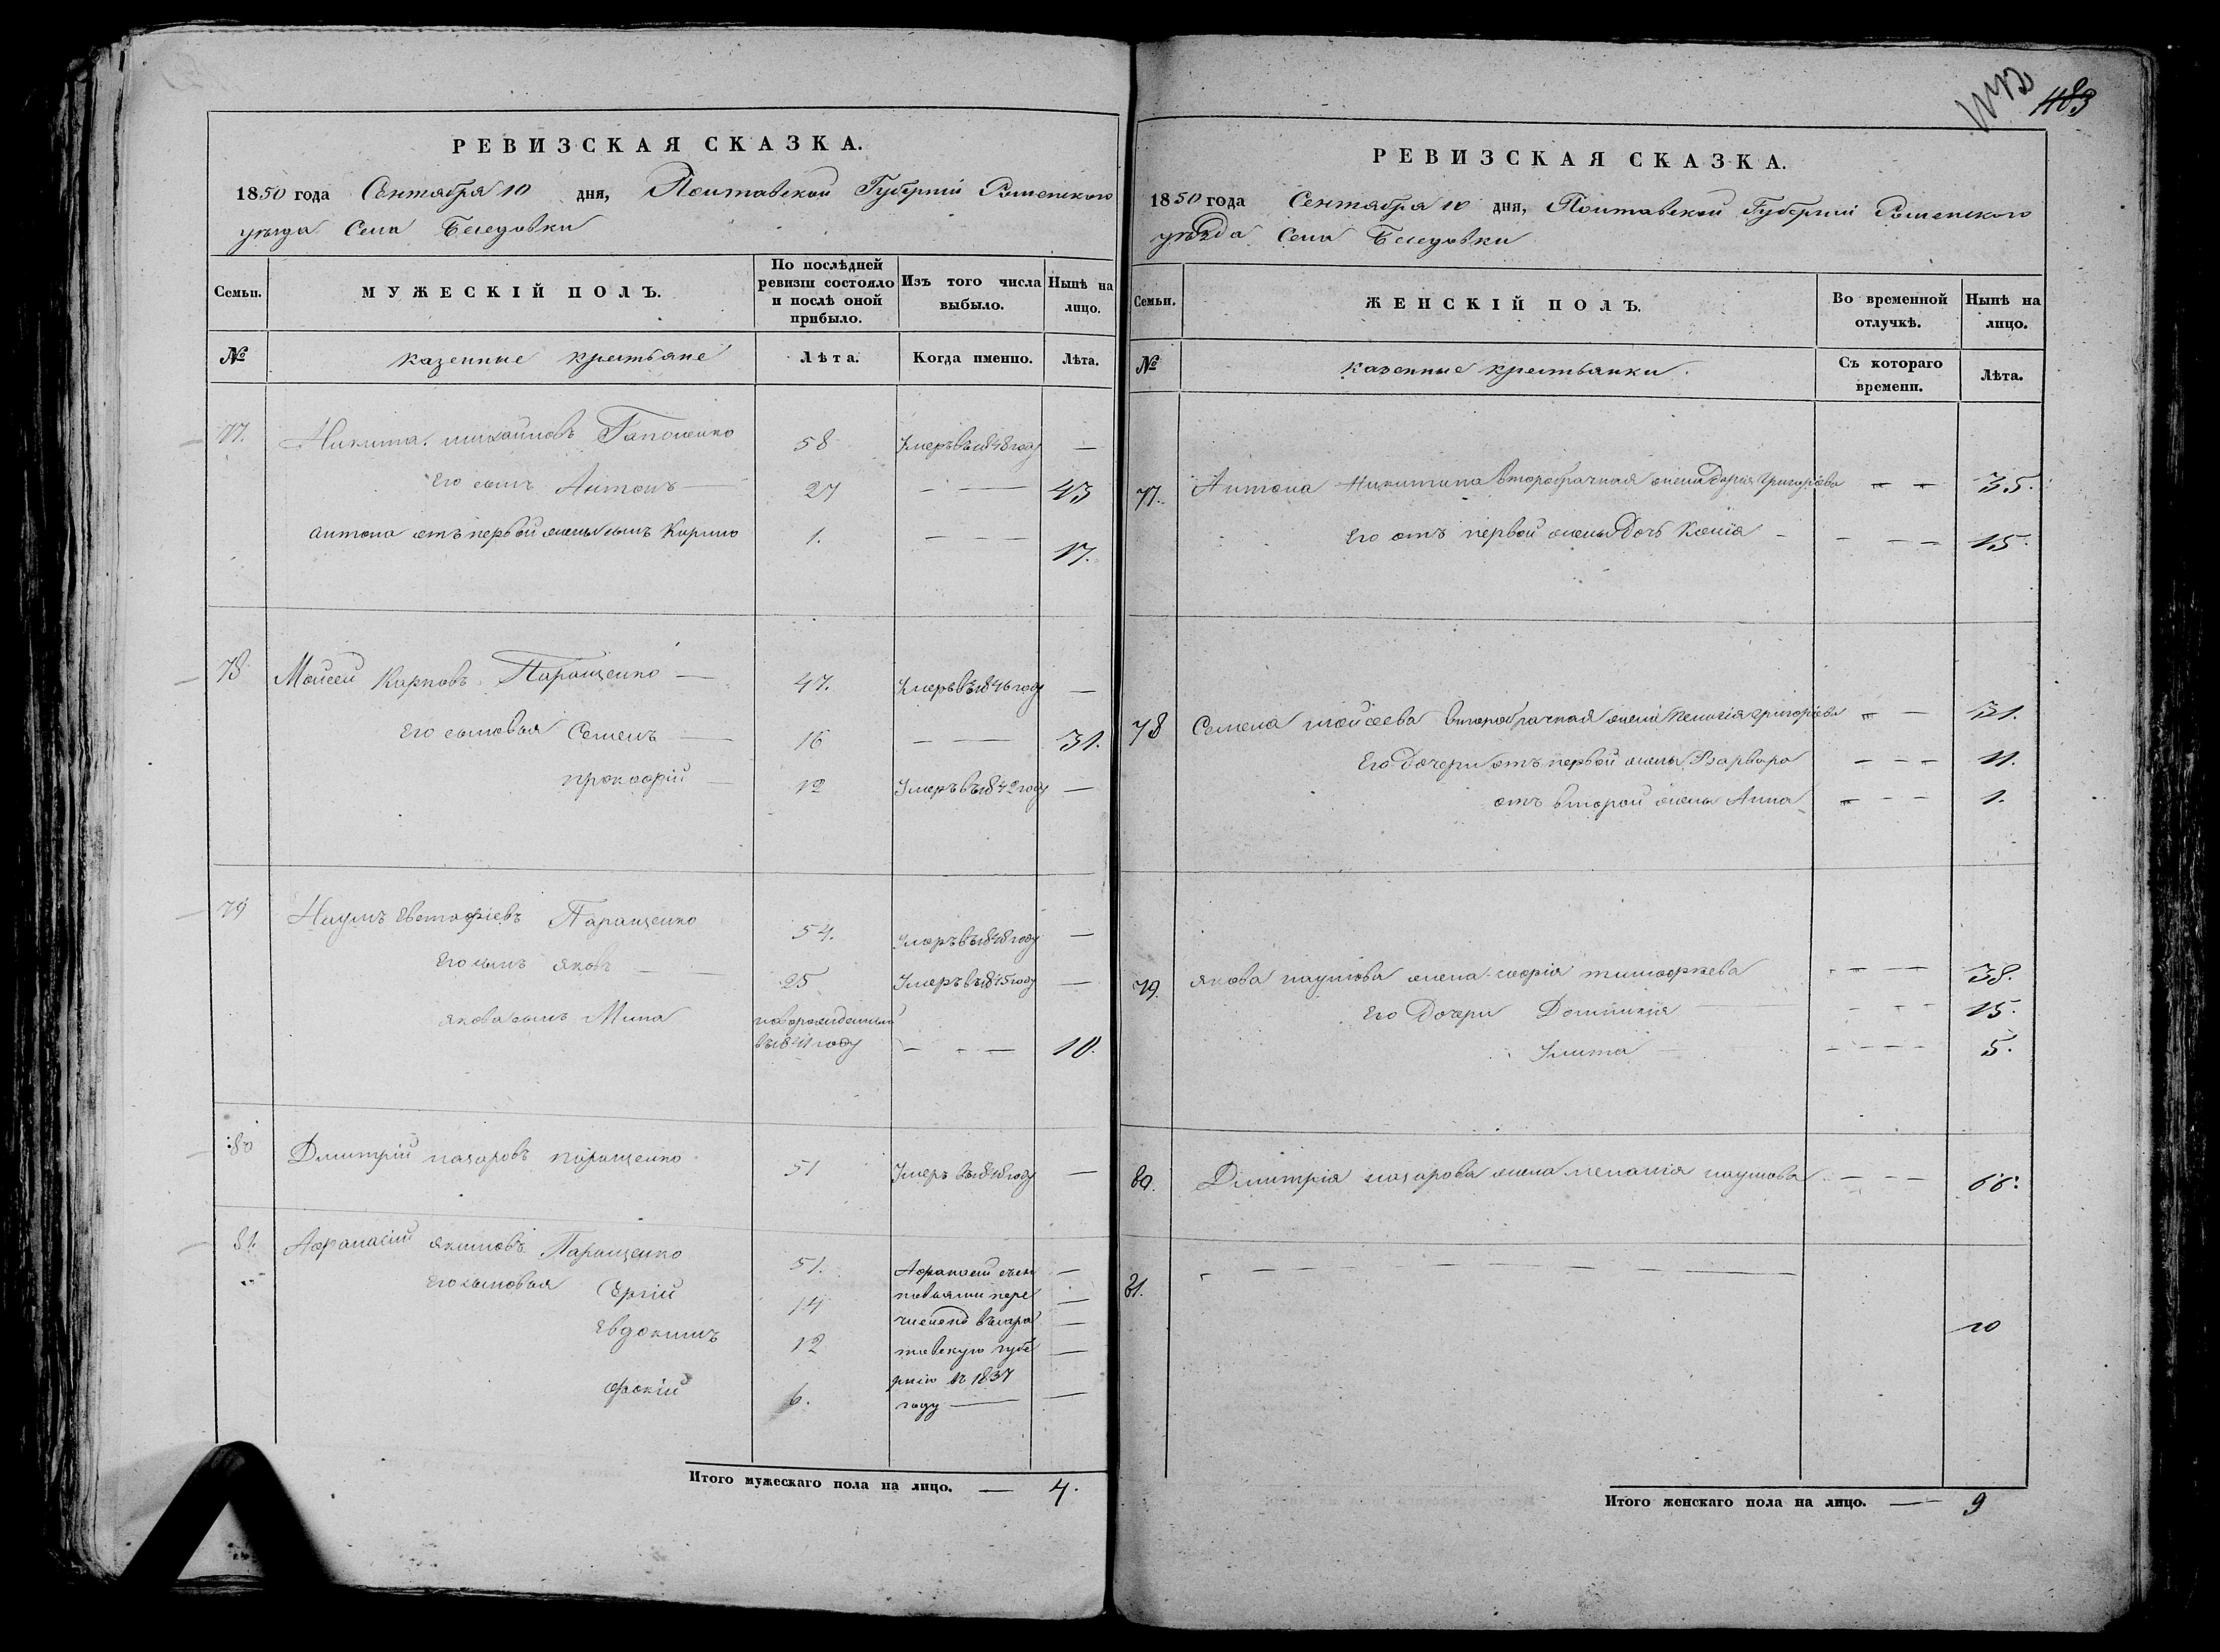 РЕВИЗСКАЯ СКАЗКА.
1850 года Сентября 10 дня, Полтавской Губерніи Роменского
уѣзда Села Беседовки
Семьи. МУЖЕСКІЙ ПОЛЪ. По послѣдней ревизіи состояло и послѣ оной прибыло. Изъ того числа выбыло. Нынѣ на лицо.
№ казенные крестьяне Лѣта. Когда именно. Лѣта.
77. Никита михайловъ Гапоненко 58 Умеръ въ 1848 году —
Его сынъ Антонъ — 27 — — 43
антона отъ первой жены сынъ Кирило 1. — — — 17.
78 Мойсей Карповъ Паращенко — 47. Умеръ въ 1846 году —
Его сыновья Семенъ — 16 — — 31.
прокофій — 12 Умеръ въ 1842 году —
79 Наумъ Евстафіевъ Паращенко 54. Умеръ въ 1848 году —
Его сынъ яковъ — — 25 Умеръ въ 1845 году —
якова сынъ Мина новорожденный
въ 1841 году — — — 10.
80 Дмитрій назаровъ паращенко 51 Умеръ въ 1848 году —
81. Афанасій якимовъ Паращенко 51. Афанасій съ сы —
Его сыновья Сергій 14 новьями пере —
числено въ сара —
Евдокимъ 12 товскую губе —
рнію въ 1837
фокій 6. году — —
Итого мужескаго пола на лицо. — 4.
483
РЕВИЗСКАЯ СКАЗКА.
1850 года Сентября 10 дня, Полтавской Губерніи Роменского
уѣзда Села Беседовки
Семьи. ЖЕНСКІЙ ПОЛЪ. Во временной отлучкѣ. Нынѣ на лицо.
№ казенные крестьянки. Съ котораго времени. Лѣта.
77. Антона Никитина второбрачная жена Дарія григоріева — — 35.
Его отъ первой жены Дочь Ксенія — — — — 15.
78 Семена мойсеева второбрачная жена пелагія григоріева — — 31.
Его Дочери отъ первой жены Варвара — — — 11.
отъ второй жены Анна — — — 1.
79. якова наумова жена марія тимофѣева — — — 38.
Его Дочери Домникія — — — 15.
Улита — — — — 5.
80. Дмитрія назарова жена меланія наумова — — — 66.
81. — — — — — — — —
10
Итого женскаго пола на лицо. — 9